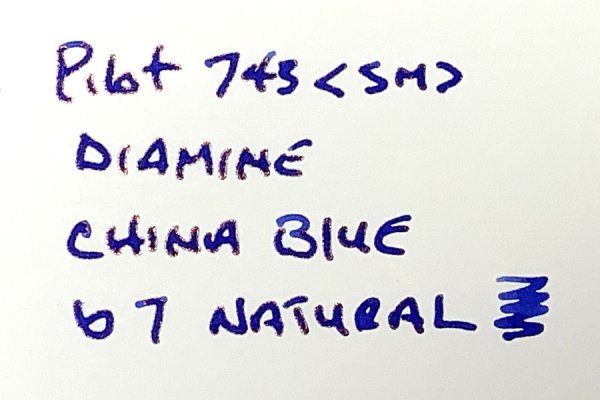 Pilot 743 <SM>
DIAMINE
CHINA BLUE
67 NATURAL